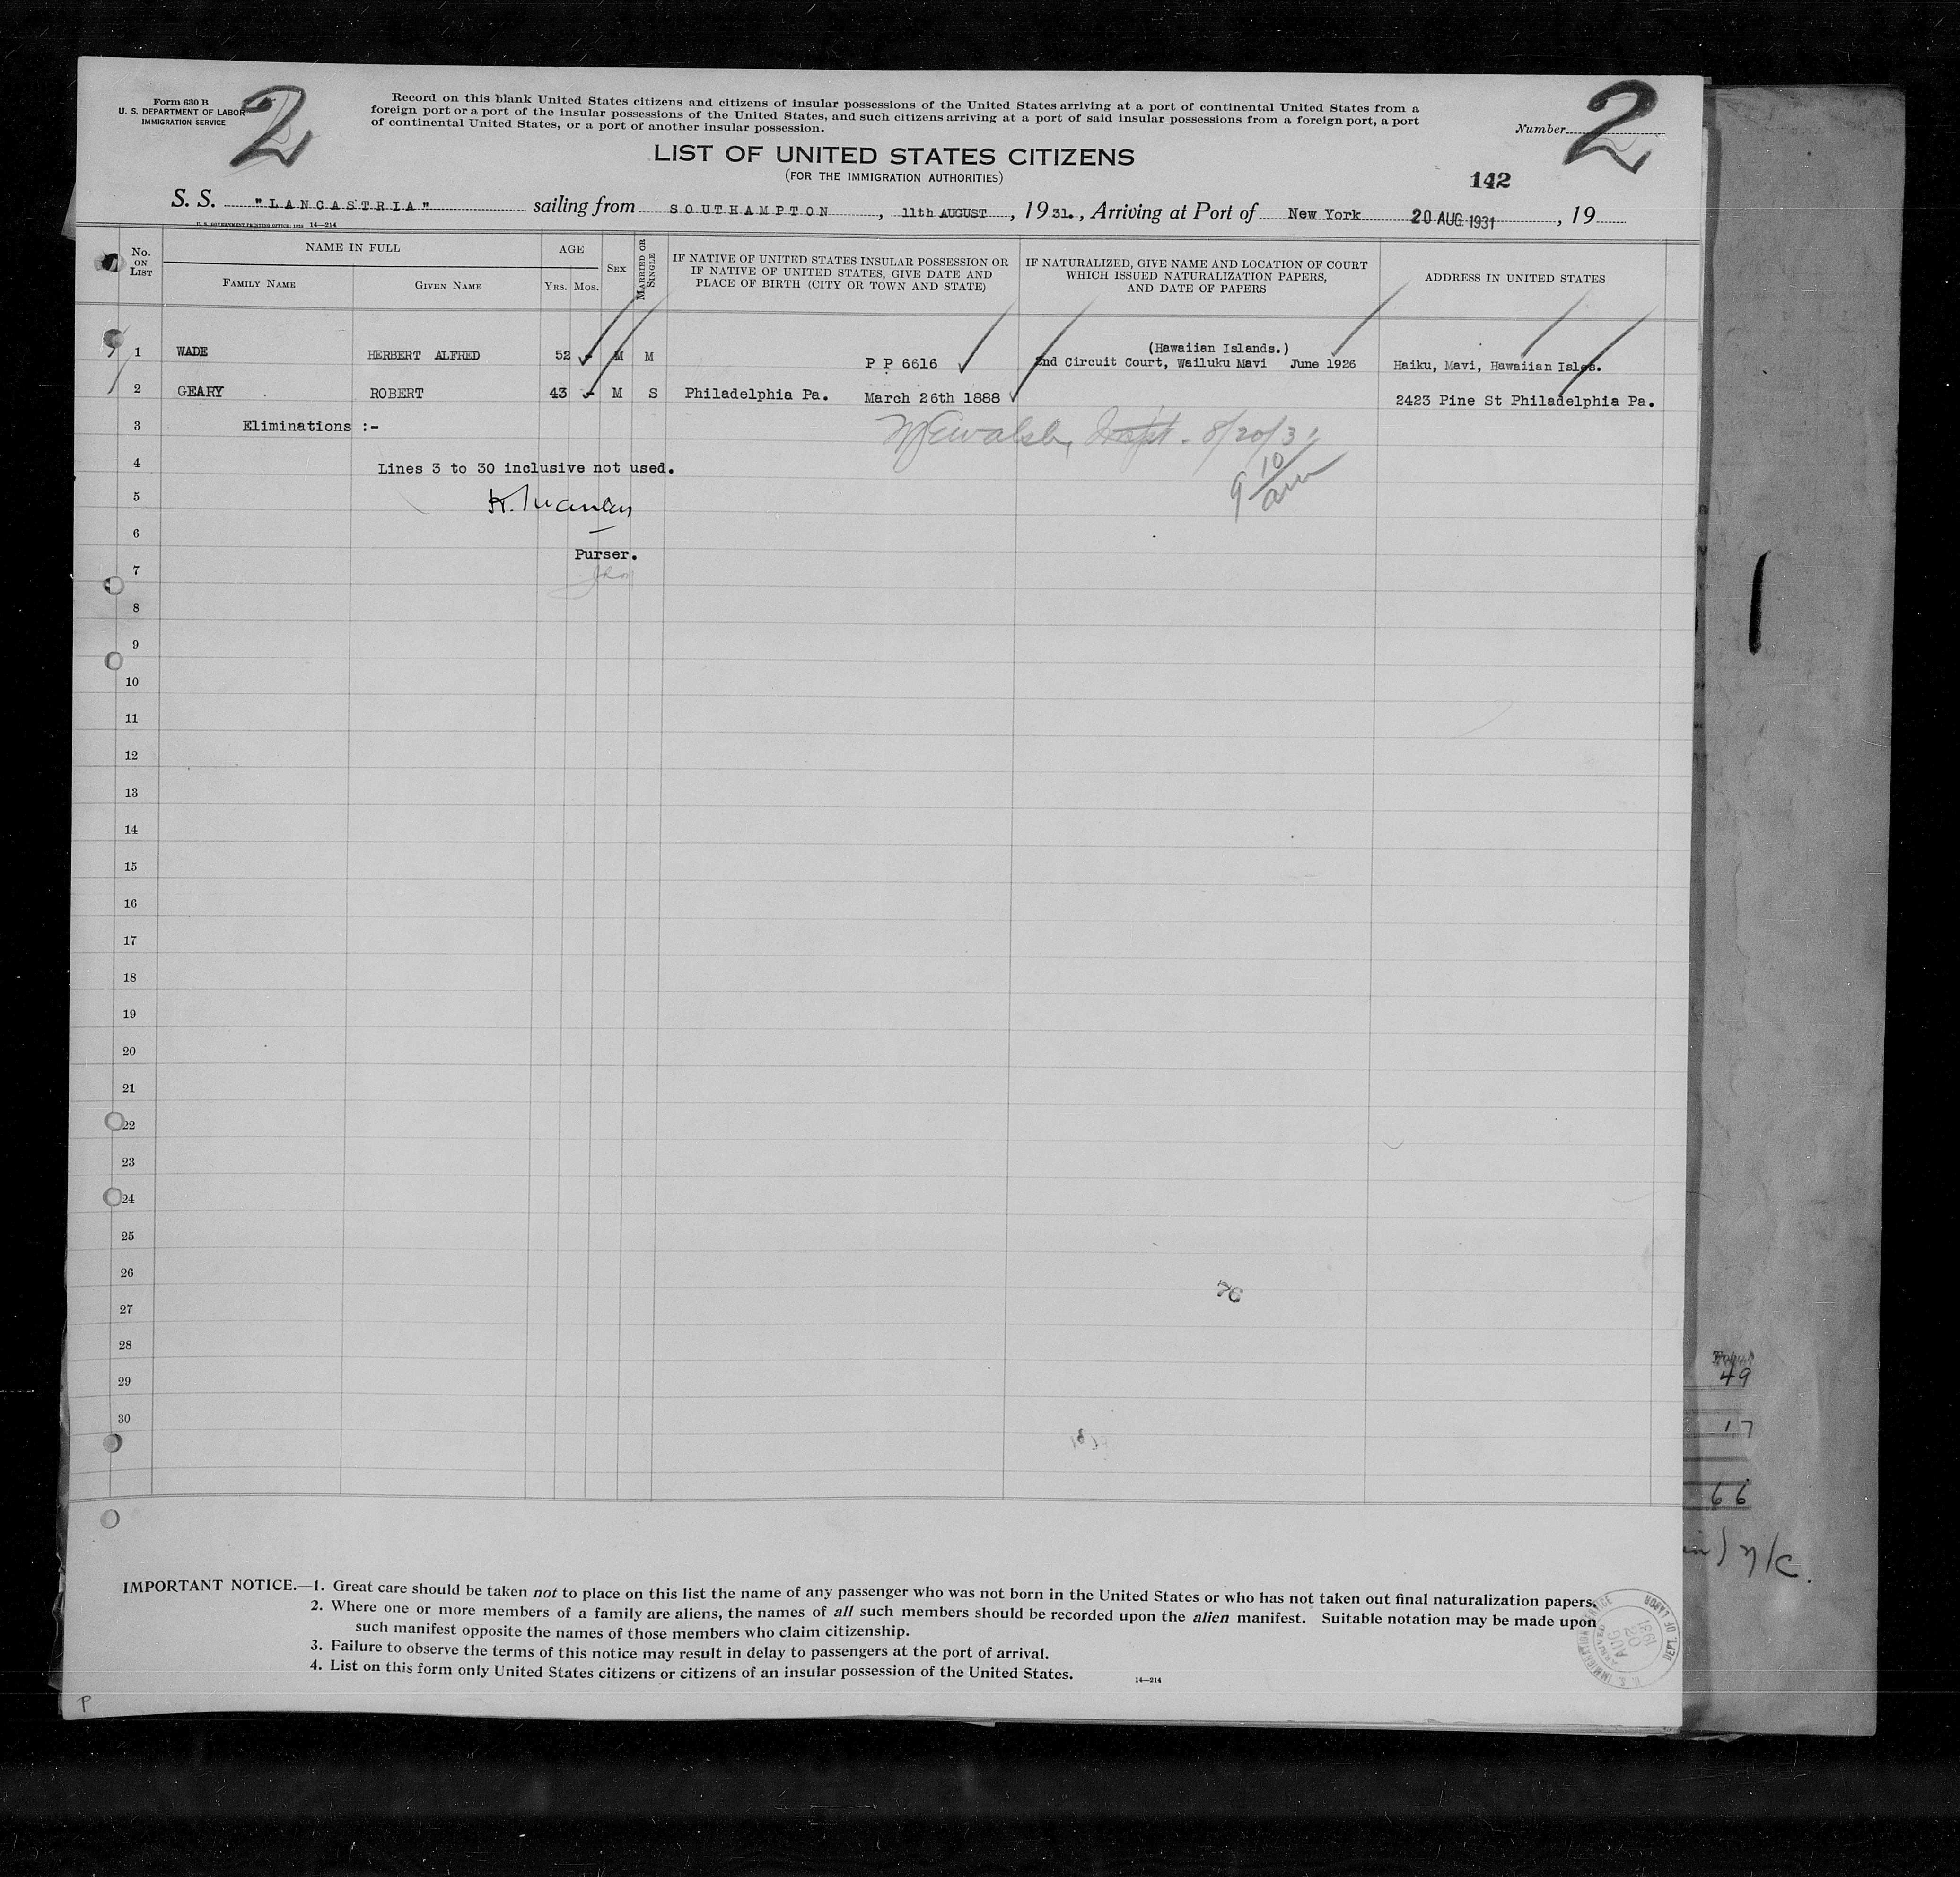 Form 630 B
U. S. DEPARTMENT OF LABOR
IMMIGRATION SERVICE
2
Record on this blank United States citizens and citizens of insular possessions of the United States arriving at a port of continental United States from a
foreign port or a port of the insular possessions of the United States, and such citizens arriving at a port of said insular possessions from a foreign port, a port
of continental United States, or a port of another insular possession.
Number 2
LIST OF UNITED STATES CITIZENS
(FOR THE IMMIGRATION AUTHORITIES)
142
S. S. "LANCASTRIA" sailing from SOUTHAMPTON, 11th AUGUST, 1931., Arriving at Port of New York 20 AUG 1931, 19
U. S. GOVERNMENT PRINTING OFFICE: 14—214
No. ON LIST
NAME IN FULL
FAMILY NAME
GIVEN NAME
AGE
YRS. MOS.
SEX
MARRIED OR SINGLE
IF NATIVE OF UNITED STATES INSULAR POSSESSION OR
IF NATIVE OF UNITED STATES, GIVE DATE AND
PLACE OF BIRTH (CITY OR TOWN AND STATE)
IF NATURALIZED, GIVE NAME AND LOCATION OF COURT
WHICH ISSUED NATURALIZATION PAPERS,
AND DATE OF PAPERS
ADDRESS IN UNITED STATES
(Hawaiian Islands.)
1 WADE HERBERT ALFRED 52 - M M P P 6616 2nd Circuit Court, Wailuku Mavi June 1926 Haiku, Mavi, Hawaiian Isles.
2 GEARY ROBERT 43 - M S Philadelphia Pa. March 26th 1888 2423 Pine St Philadelphia Pa.
3 Eliminations :-
8/20/31
4 Lines 3 to 30 inclusive not used.
9 10 am
5
6
Purser.
7
8
9
10
11
12
13
14
15
16
17
18
19
20
21
22
23
24
25
26
27
76
28
29
30
49
17
66
IMPORTANT NOTICE.—1. Great care should be taken not to place on this list the name of any passenger who was not born in the United States or who has not taken out final naturalization papers.
2. Where one or more members of a family are aliens, the names of all such members should be recorded upon the alien manifest. Suitable notation may be made upon
such manifest opposite the names of those members who claim citizenship.
3. Failure to observe the terms of this notice may result in delay to passengers at the port of arrival.
4. List on this form only United States citizens or citizens of an insular possession of the United States.
14—214
U. S. IMMIGRATION SERVICE DEPT. OF LABOR
ARRIVED
AUG
20
1931
P